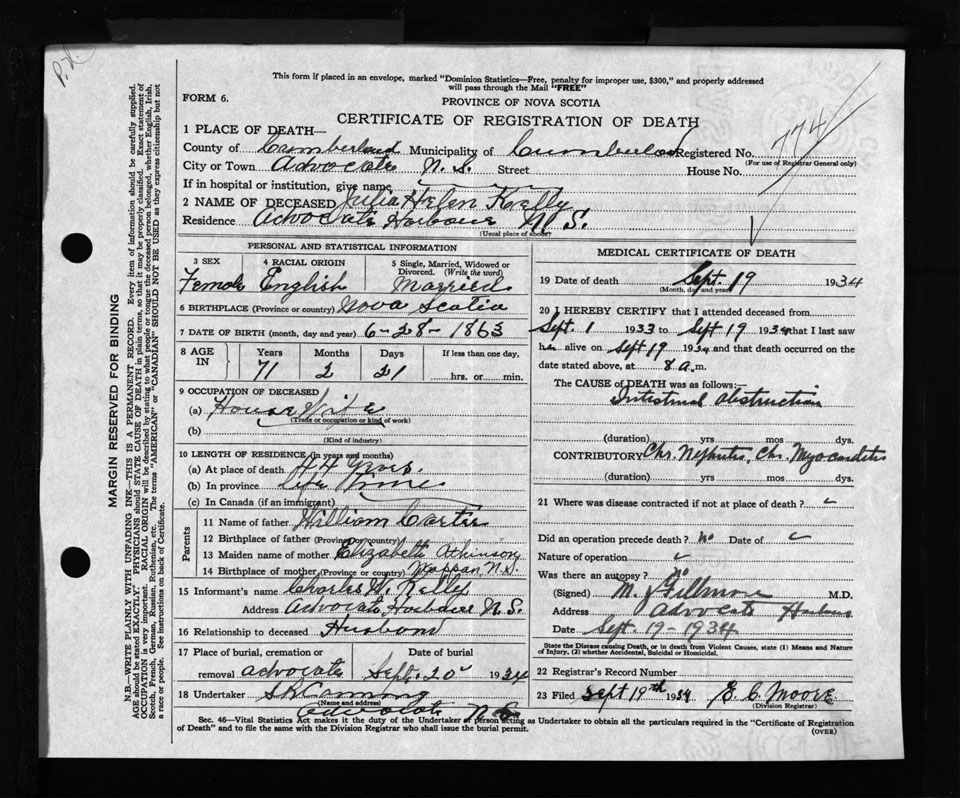 P.K
This form if placed in an envelope, marked "Dominion Statistics—Free, penalty for improper use, $300," and properly addressed
will pass through the Mail "FREE"
FORM 6.
PROVINCE OF NOVA SCOTIA
CERTIFICATE OF REGISTRATION OF DEATH
1 PLACE OF DEATH—
County of Cumberland Municipality of Cumberland Registered No. 774
(For use of Registrar General only)
City or Town Advocate N.S. Street House No.
If in hospital or institution, give name
2 NAME OF DECEASED Julia Helen Kelly
Residence Advocate Harbour N.S.
(Usual place of abode)
PERSONAL AND STATISTICAL INFORMATION
3 SEX 4 RACIAL ORIGIN 5 Single, Married, Widowed or Divorced. (Write the word)
Female English Married
6 BIRTHPLACE (Province or country) Nova Scotia
7 DATE OF BIRTH (month, day and year) 6-28-1863
8 AGE IN Years Months Days If less than one day.
71 2 21 hrs. or min.
9 OCCUPATION OF DECEASED
(a) House Wife
(Trade or occupation or kind of work)
(b)
(Kind of industry)
10 LENGTH OF RESIDENCE (in years and months)
(a) At place of death 44 years.
(b) In province life time
(c) In Canada (if an immigrant)
Parents
11 Name of father William Carter
12 Birthplace of father (Province or country)
13 Maiden name of mother Elizabeth Atkinson
14 Birthplace of mother (Province or country) Nappan N.S.
15 Informant's name Charles W. Kelly
Address Advocate Harbour N.S.
16 Relationship to deceased Husband
17 Place of burial, cremation or removal Date of burial
advocate Sept. 20 1934
18 Undertaker
(Name and address)
advocate N.S.
MEDICAL CERTIFICATE OF DEATH
19 Date of death Sept. 19 1934
(Month, day and year)
20 I HEREBY CERTIFY that I attended deceased from
Sept. 1 1933 to Sept 19 1934 that I last saw
her alive on Sept 19 1934 and that death occurred on the
date stated above, at 8 a.m.
The CAUSE of DEATH was as follows:—
Intestinal obstruction
(duration) yrs mos dys.
CONTRIBUTORY Chr. Nephritis, Chr. Myocarditis
(duration) yrs mos dys.
21 Where was disease contracted if not at place of death?
Did an operation precede death? no Date of
Nature of operation
Was there an autopsy? no
(Signed) M. Gillmore M.D.
Address advocate Harbour
Date Sept. 19-1934
State the Disease causing Death, or in death from Violent Causes, state (1) Means and Nature of Injury, (2) whether Accidental, Suicidal or Homicidal.
22 Registrar's Record Number
23 Filed Sept 19th 1934 E. C. Moore
(Division Registrar)
Sec. 46—Vital Statistics Act makes it the duty of the Undertaker or person acting as Undertaker to obtain all the particulars required in the "Certificate of Registration
of Death" and to file the same with the Division Registrar who shall issue the burial permit.
(OVER)
MARGIN RESERVED FOR BINDING
N.B.—WRITE PLAINLY WITH UNFADING INK—THIS IS A PERMANENT RECORD. Every item of information should be carefully supplied.
AGE should be stated EXACTLY. PHYSICIANS should STATE CAUSE OF DEATH in plain terms, so that it may be properly classified. Exact statement of
OCCUPATION is very important. RACIAL ORIGIN will be described by stating to what people or tongue the deceased person belonged, whether English, Irish,
Scotch, French, German, Russian, Ruthenian, etc. The terms "AMERICAN" or "CANADIAN" SHOULD NOT BE USED as they express citizenship but not
a race or people. See instructions on back of Certificate.